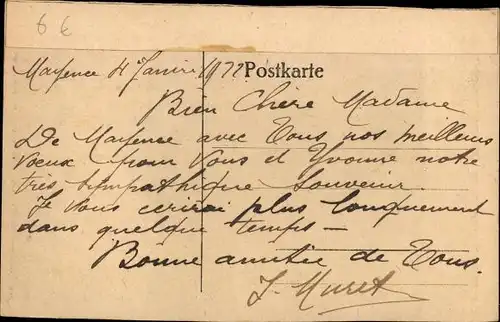 6 €
Mayence 4 Janvier 1922
Postkarte
Bien Chère Madame
De Mayence avec Tous nos meilleurs
voeux pour Vous et Yvonne notre
très sympathique souvenir.
Je vous ecrirai plus longuement
dans quelque temps —
Bonne amitie de Tous.
J. Muret